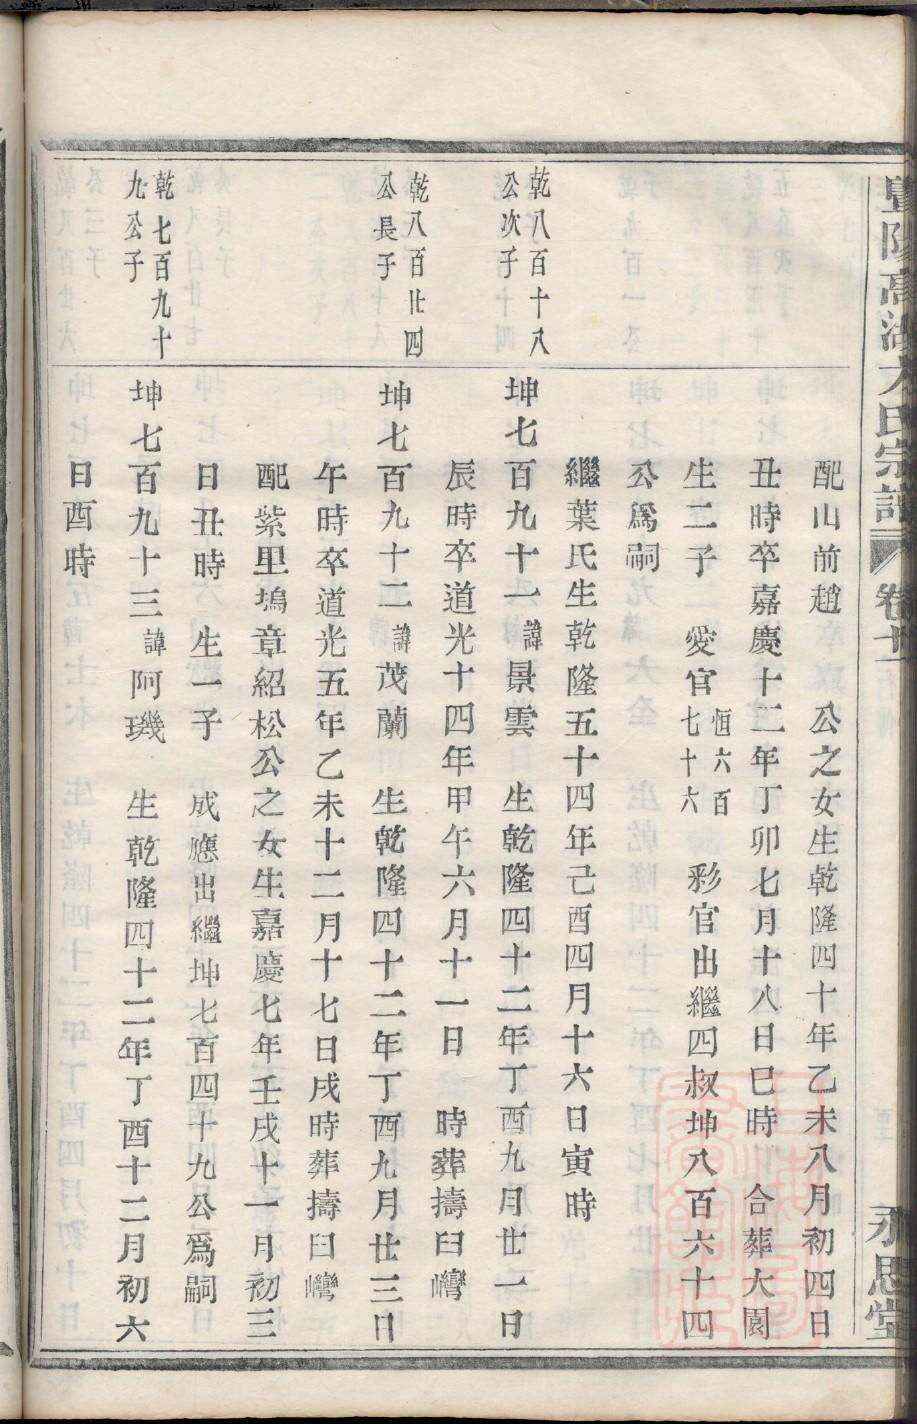 豐陽高湖方氏宗譜 卷十一 永思堂
配山前趙 公之女生乾隆四十年乙未八月初四日
丑時卒嘉慶十二年丁卯七月十八日巳時 合葬大園
生二子 愛官恒六百七十六 彩官出繼四叔坤八百六十四
公爲嗣
繼葉氏生乾隆五十四年己酉四月十六日寅時
乾八百十八
公次子
坤七百九十一諱景雲 生乾隆四十二年丁酉九月廿一日
辰時卒道光十四年甲午六月十一日 時葬擣臼灣
乾八百廿四
公長子
坤七百九十二諱茂蘭 生乾隆四十二年丁酉九月廿三日
午時卒道光五年乙未十二月十七日戌時葬擣臼灣
配紫里塢章紹松公之女生嘉慶七年壬戌十一月初三
日丑時 生一子 成應出繼坤七百四十九公爲嗣
乾七百九十
九公子
坤七百九十三諱阿璣 生乾隆四十二年丁酉十二月初六
日酉時